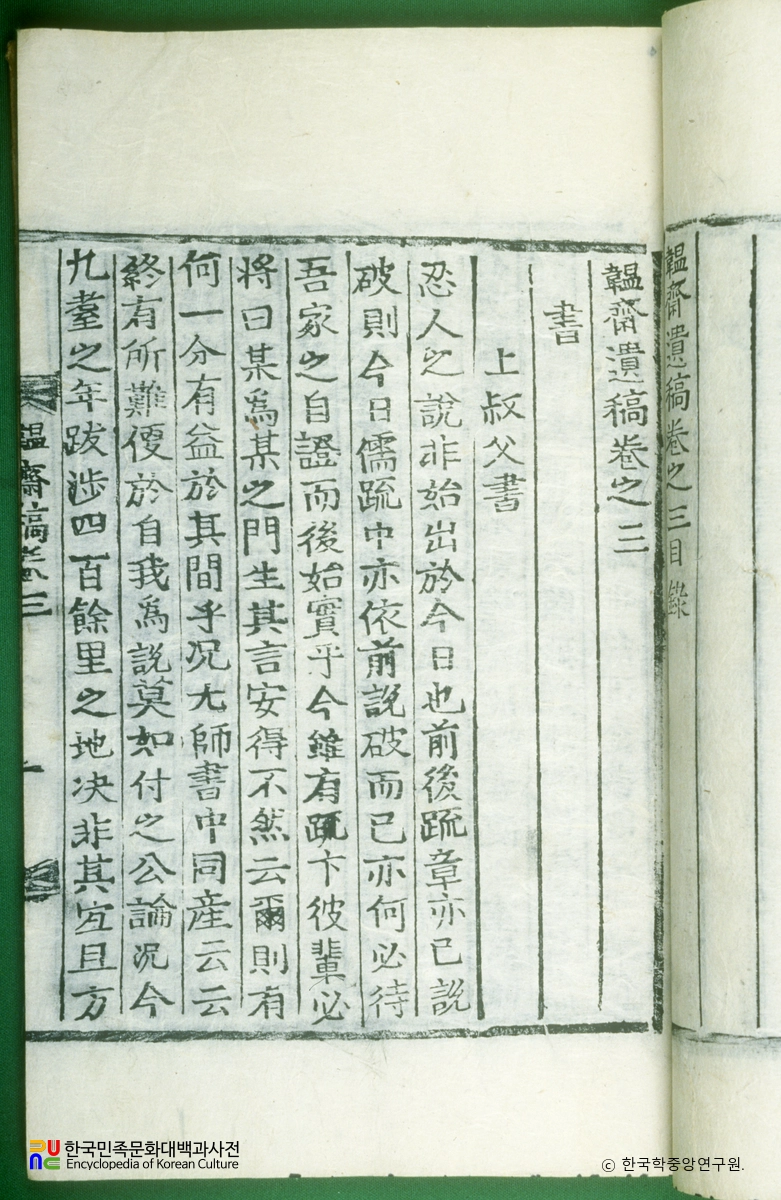 韞齋遺稿卷之三目錄
韞齋遺稿卷之三
書
上叔父書
忍人之說非始出於今日也前後疏章亦已說
破則今日儒疏中亦依前說破而已亦何必待
吾家之自證而後始實乎今雖有疏卞彼輩必
將曰某爲某之門生其言安得不然云爾則有
何一分有益於其間乎况尤師書中同産云云
終有所難便於自我爲說莫如付之公論况今
九耋之年跋涉四百餘里之地决非其宜且方
韞齋稿卷三
一
한국민족문화대백과사전
Encyclopedia of Korean Culture
© 한국학중앙연구원.